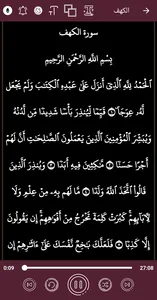 الكهف
سورة الكهف
بِسْمِ اللَّهِ الرَّحْمَنِ الرَّحِيمِ
الْحَمْدُ لِلَّهِ الَّذِي أَنزَلَ عَلَى عَبْدِهِ الْكِتَابَ وَلَمْ يَجْعَل
لَّهُ عِوَجَا ۝ قَيِّمًا لِّيُنذِرَ بَأْسًا شَدِيدًا مِّن لَّدُنْهُ
وَيُبَشِّرَ الْمُؤْمِنِينَ الَّذِينَ يَعْمَلُونَ الصَّالِحَاتِ أَنَّ لَهُمْ
أَجْرًا حَسَنًا ۝ مَّاكِثِينَ فِيهِ أَبَدًا ۝ وَيُنذِرَ الَّذِينَ
قَالُوا اتَّخَذَ اللَّهُ وَلَدًا ۝ مَّا لَهُم بِهِ مِنْ عِلْمٍ وَلَا
لِآبَائِهِمْ كَبُرَتْ كَلِمَةً تَخْرُجُ مِنْ أَفْوَاهِهِمْ إِن يَقُولُونَ
إِلَّا كَذِبًا ۝ فَلَعَلَّكَ بَاخِعٌ نَّفْسَكَ عَلَى آثَارِهِمْ إِن
0:09 27:08